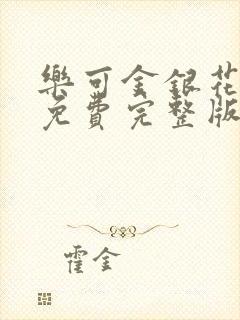 樂可金銀花
免費完整版
霍金